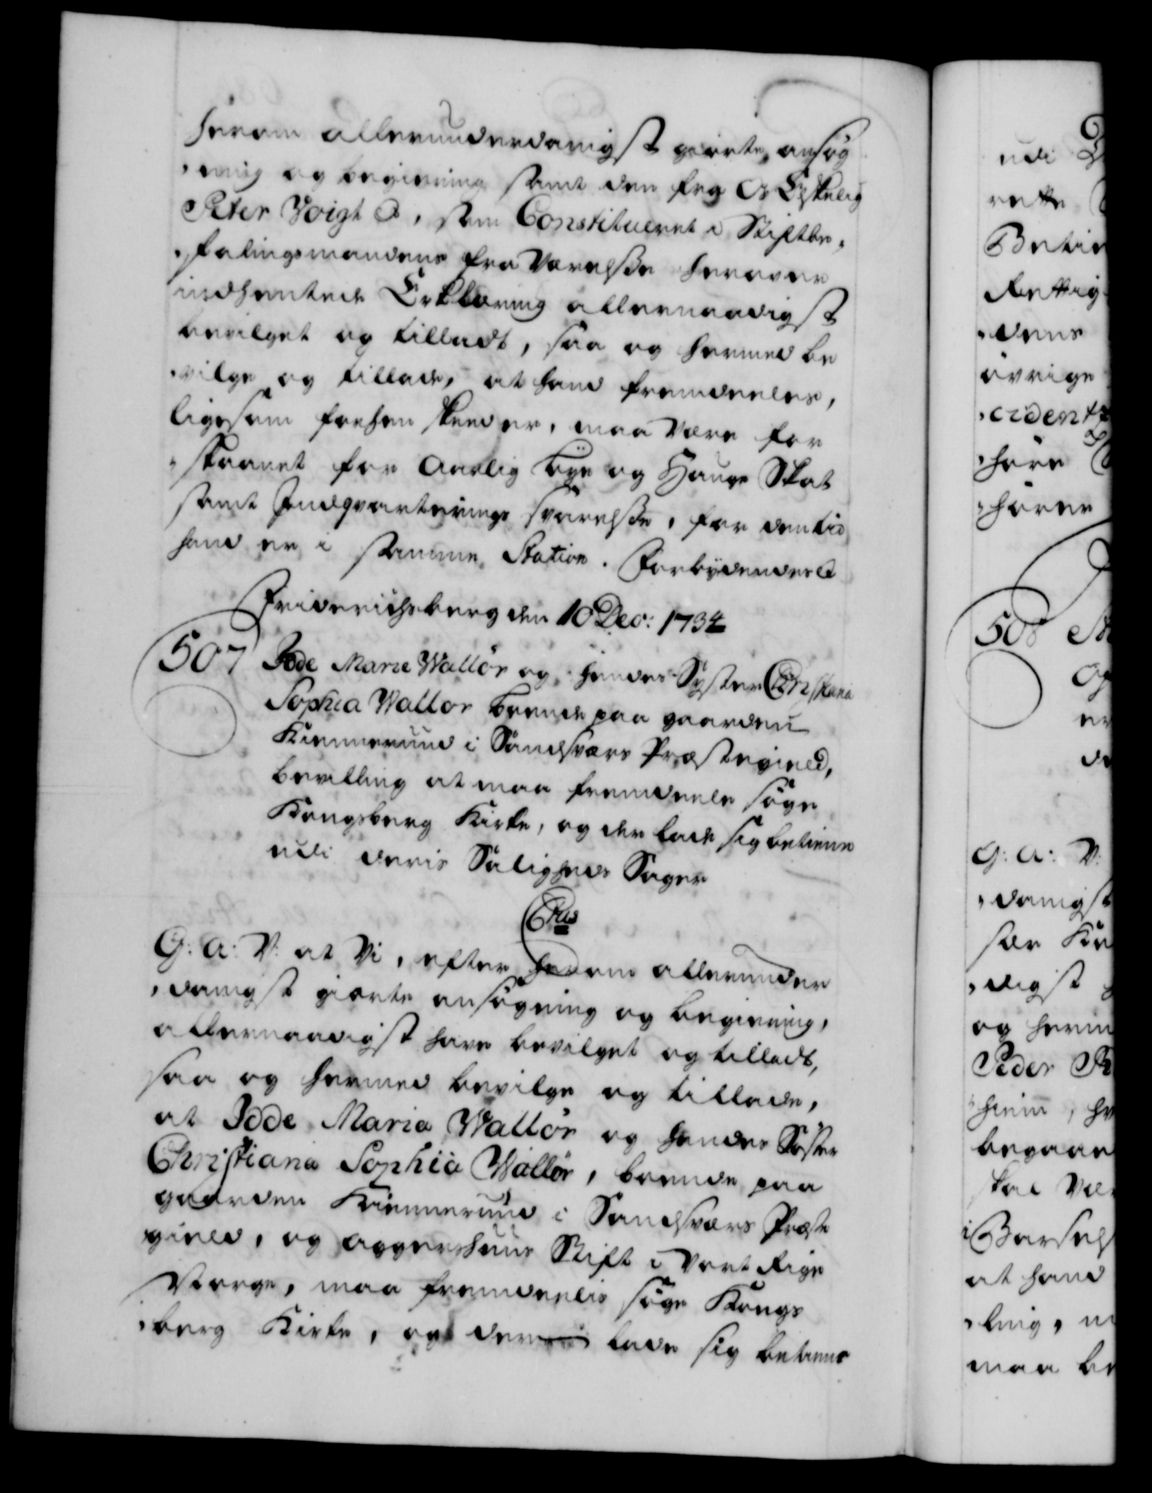 herom allerunderdanigst giorte ansøg
ning og begiering samt den fra Os Elskelig
Peter Voigt, som Constitueret i Stiftbe-
falingsmandens fraværelse herover
indhentede Erklæring allernaadigst
bevilget og tilladt, saa og hermed be
vilge og tillade, at hand fremdeeles,
ligesom forhen skeed er, maa være for
skaanet for Aarlig Bye og Hauge Skat
samt Indqvarterings svarelse, for den tid
hand er i samme Station. Forbydendes
Friderichsberg den 10 Dec: 1734
507 Idde Marie Wallør og hendes Syster Christiana
Sophia Wallor boende paa gaarden
Kiennerund i Sandsværs Præstegield,
bevilling at maa fremdeele søge
Kongsberg Kirke, og der lade sig betiene
udi deris Saligheds Sager
C 6tus
G: A: V: at Vi, efter herom allerunder
danigst giorte ansøgning og begiering,
allernaadigst have bevilget og tilladt,
saa og hermed bevilge og tillade,
at Idde Maria Wallør og hendes Søster
Christiana Sophia Wallør, boende paa
gaarden Kiennerund i Sandsværs Præste
gield, og Aggershuus Stift i Vort Rige
Norge, maa fremdeelis søge Kongs
berg Kirke, og der lade sig betiene
udi
rette
øvrige
508
G: A: V:
danigst
digst
og herm
Peder
begiær
skal Vær
Barsels
at hand
ling,
maa